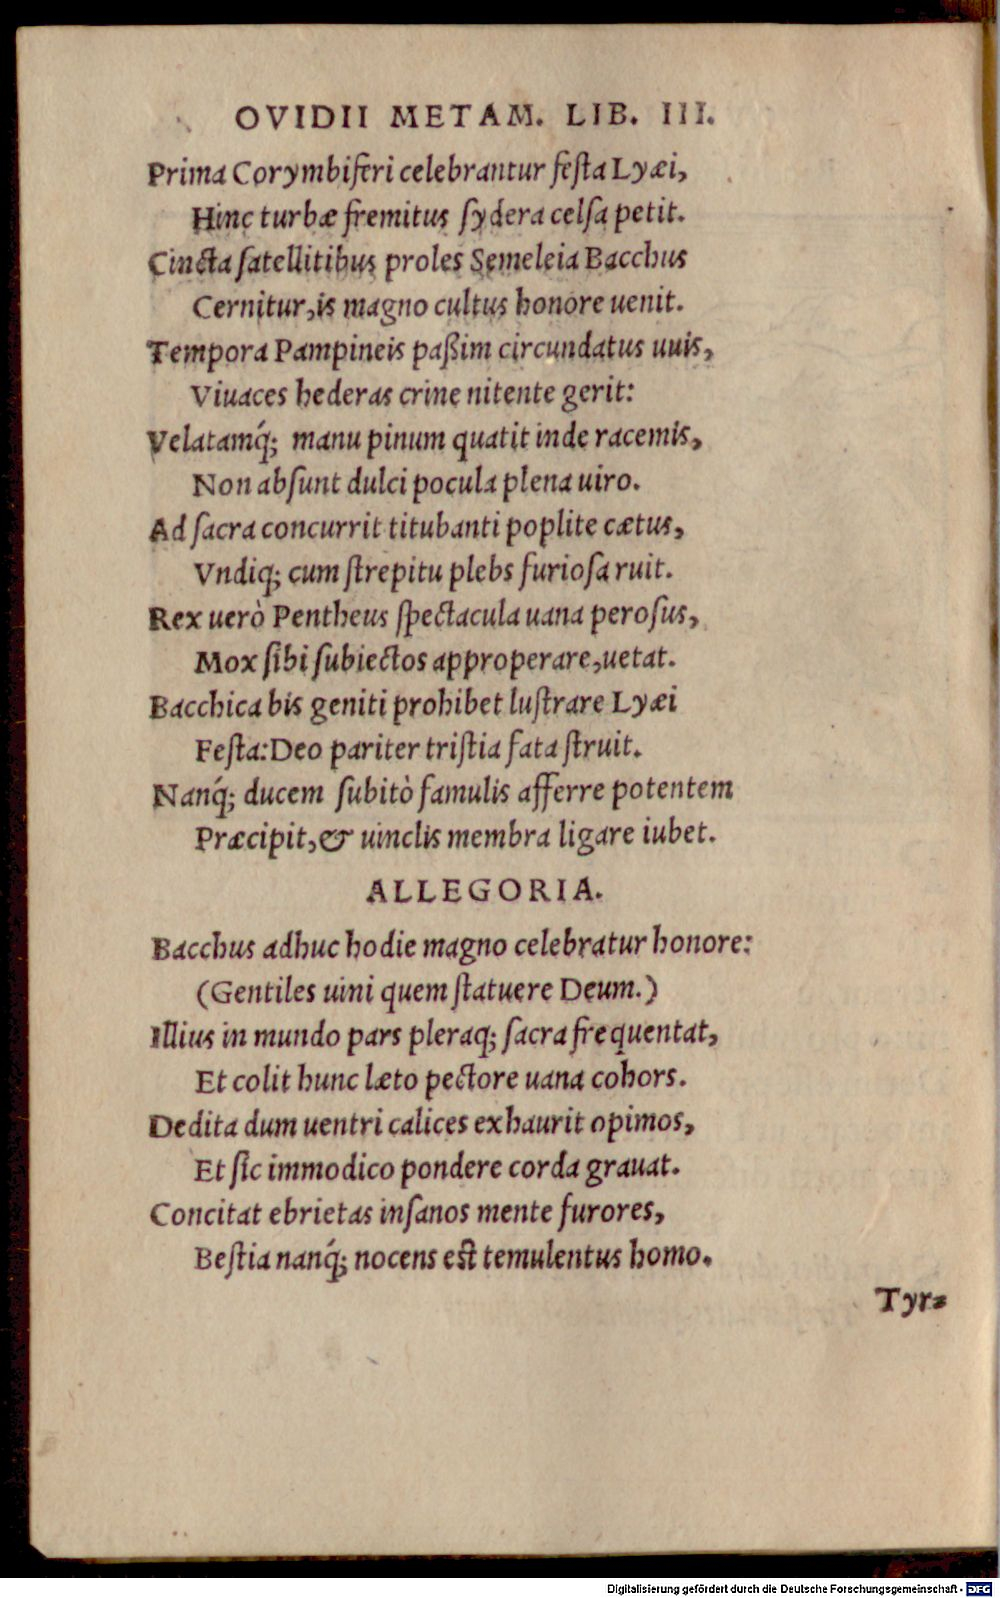 OVIDII METAM. LIB. III.
Prima Corymbiferi celebrantur feſta Lyæi,
Hinc turbæ fremitus ſydera celſa petit.
Cincta ſatellitibus proles Semeleia Bacchus
Cernitur, is magno cultus honore uenit.
Tempora Pampineis paßim circundatus uuis,
Viuaces hederas crine nitente gerit:
Velatamq́; manu pinum quatit inde racemis,
Non abſunt dulci pocula plena uiro.
Ad ſacra concurrit titubanti poplite cætus,
Vndiq; cum ſtrepitu plebs furioſa ruit.
Rex uerò Pentheus ſpectacula uana peroſus,
Mox ſibi ſubiectos approperare, uetat.
Bacchica bis geniti prohibet luſtrare Lyæi
Feſta: Deo pariter triſtia fata ſtruit.
Nanq́; ducem ſubitò famulis afferre potentem
Præcipit, & uinclis membra ligare iubet.
ALLEGORIA.
Bacchus adhuc hodie magno celebratur honore:
(Gentiles uini quem ſtatuere Deum.)
Illius in mundo pars pleraq; ſacra frequentat,
Et colit hunc læto pectore uana cohors.
Dedita dum uentri calices exhaurit opimos,
Et ſic immodico pondere corda grauat.
Concitat ebrietas inſanos mente furores,
Beſtia nanq́; nocens eſt temulentus homo.
Tyr=
Digitalisierung gefördert durch die Deutsche Forschungsgemeinschaft - DFG